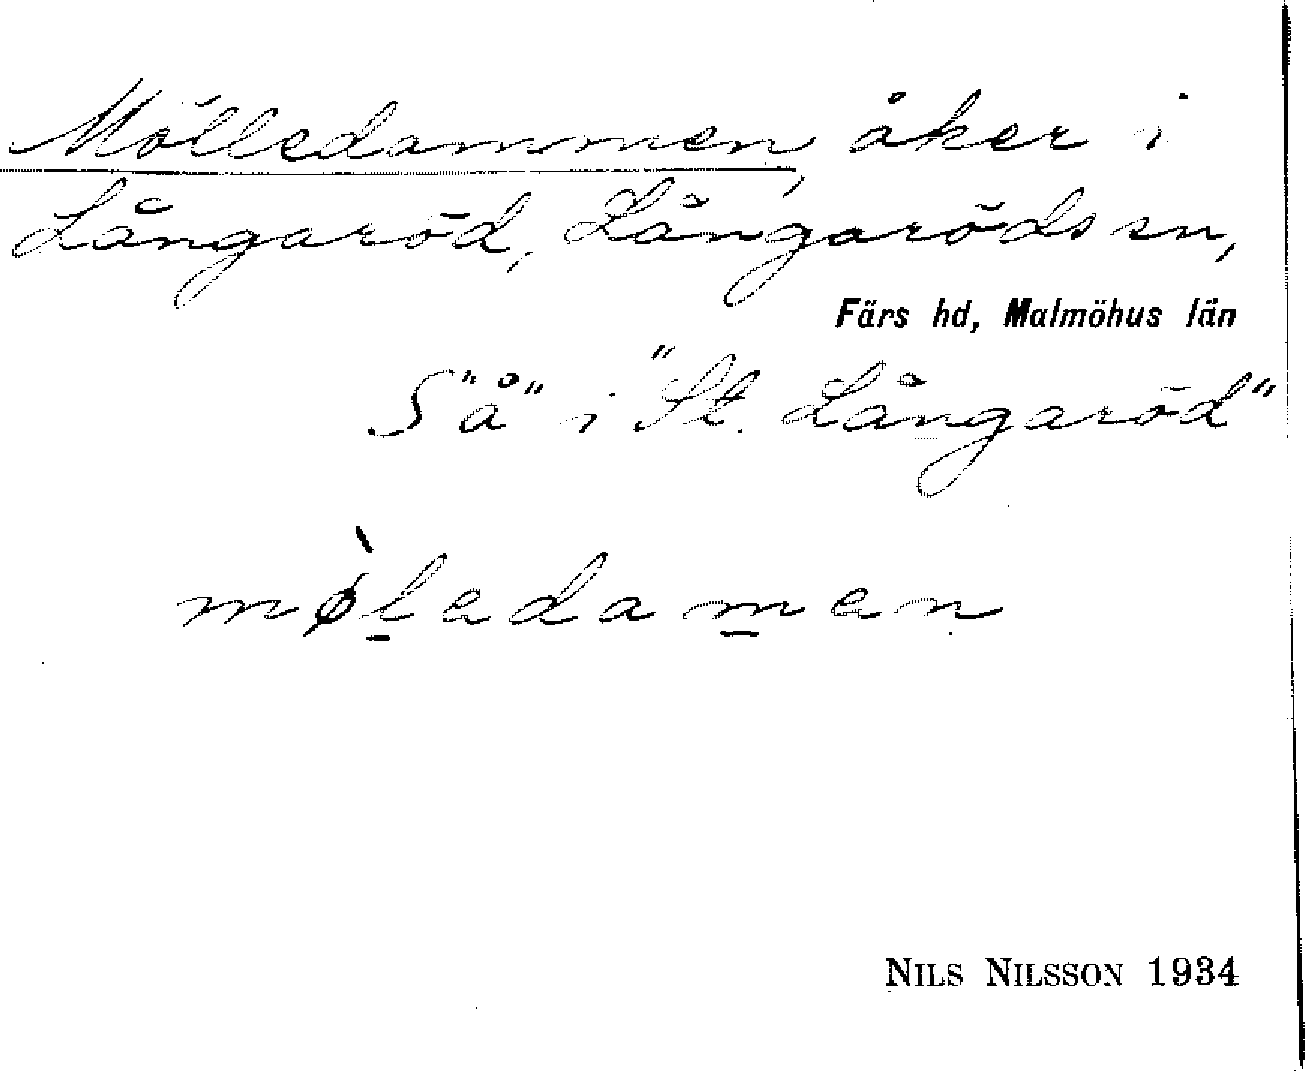 Mölledammen, åker i
Långaröd, Långaröds sn,
Färs hd, Malmöhus län
S "å" i "St. Långaröd"
mø̀l̲edam̲en
NILS NILSSON 1934